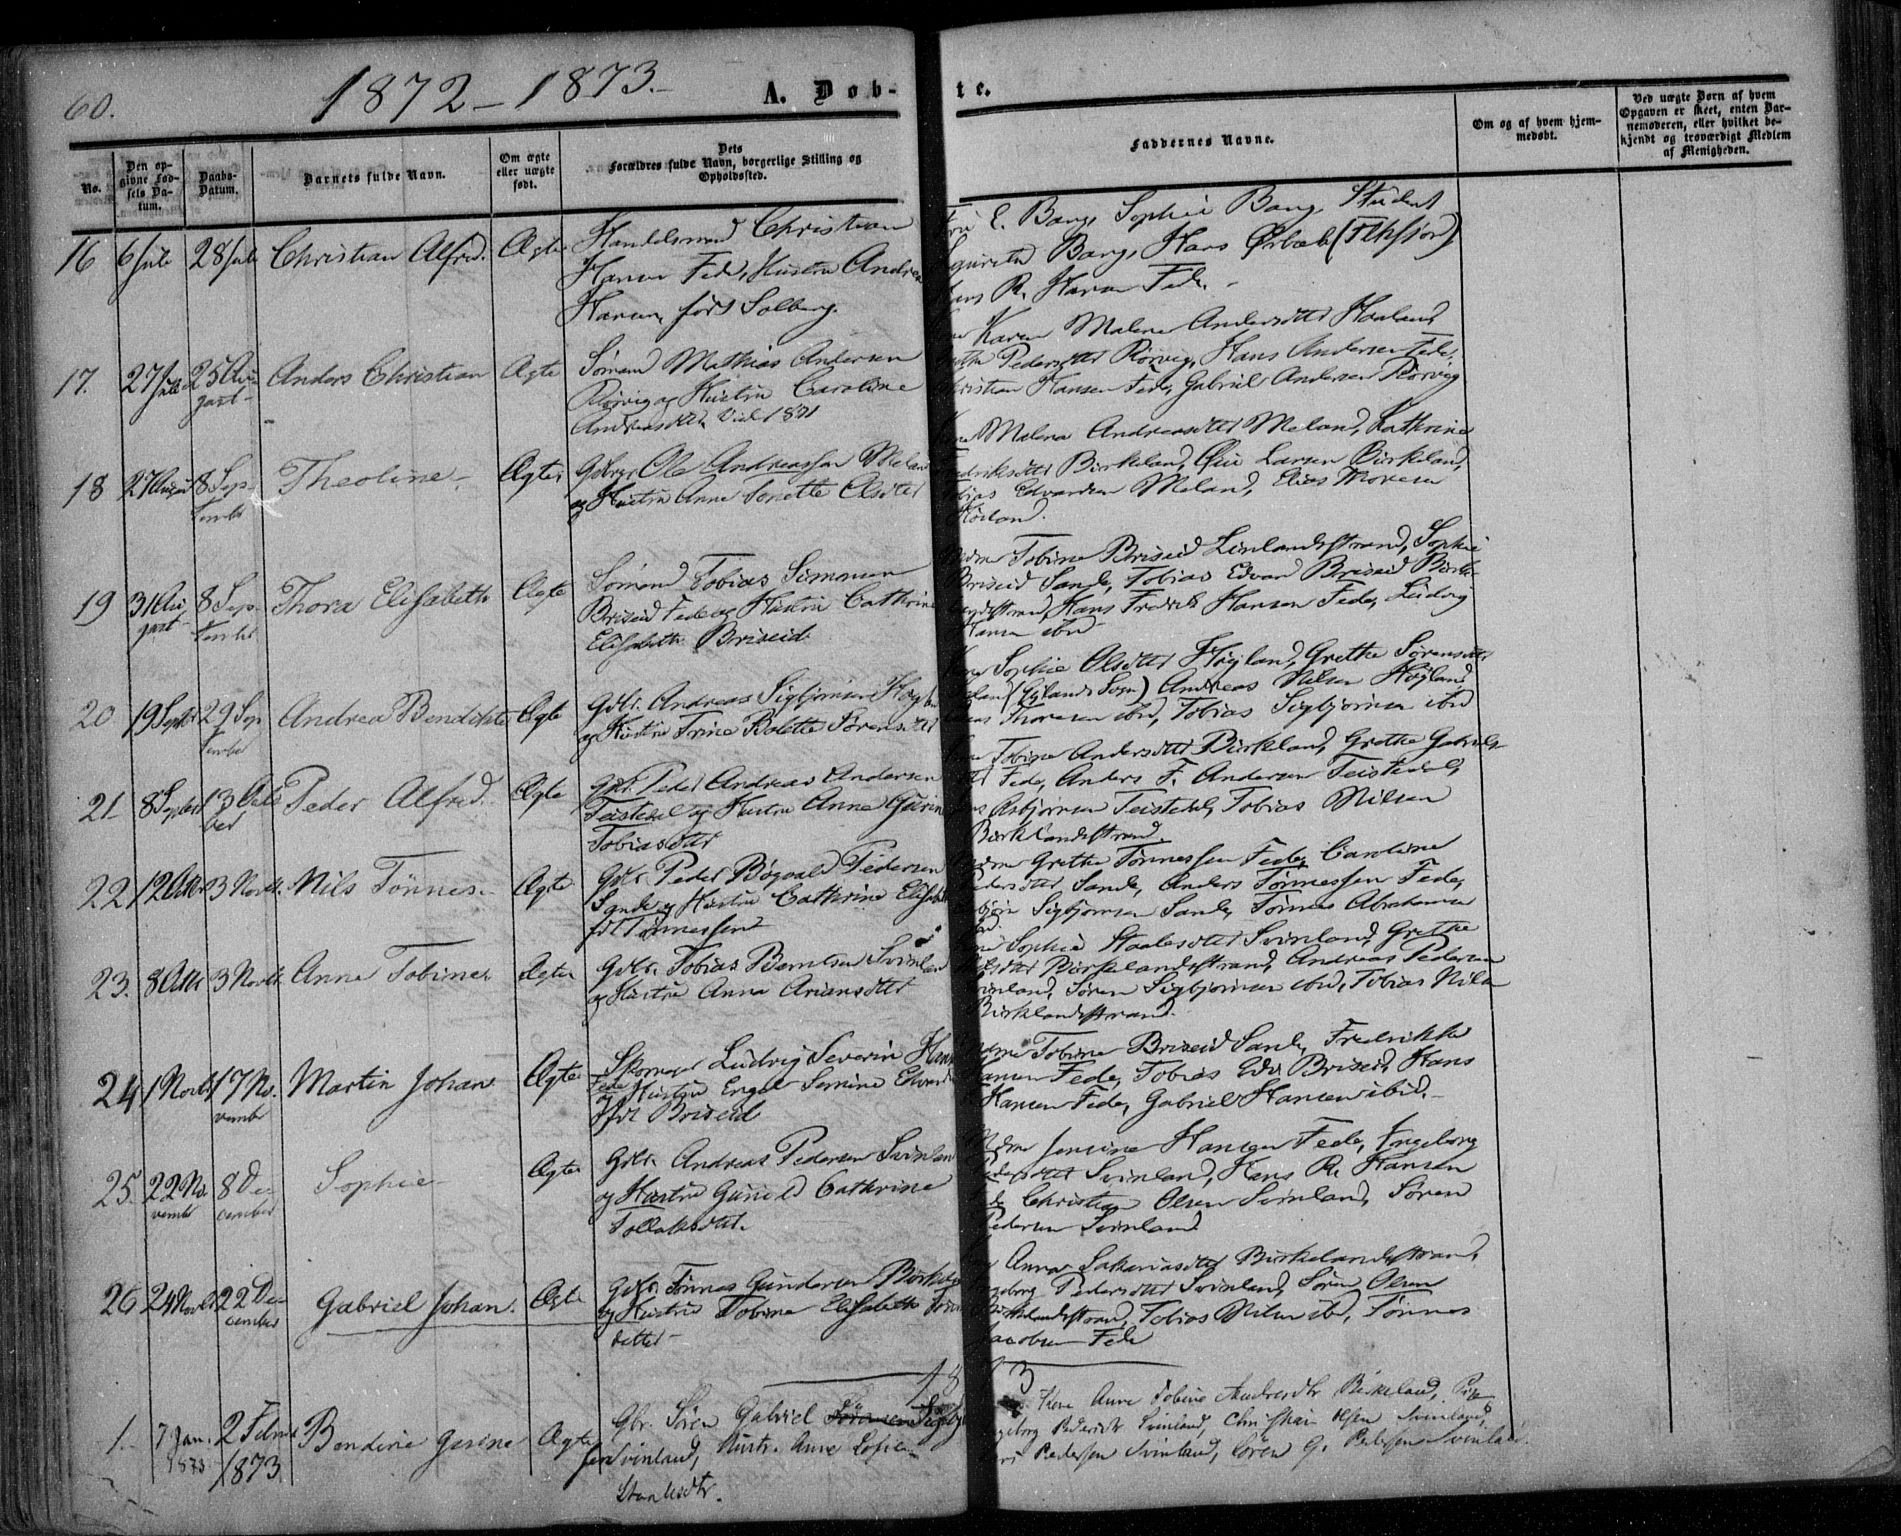 60.
1872 - 1873.
A. Døb-
te.
No.
Den op-
givne Fød-
sels Da-
tum.
Daabs-
Datum.
Barnets fulde Navn.
Om ægte
eller uægte
født.
Dets
Forældres fulde Navn, borgerlige Stilling og
Opholdssted.
Faddernes Navne.
Om og af hvem hjem-
medøbt.
Ved uægte Børn af hvem
Opgaven er skeet, enten Bar-
nemoderen, eller hvilket be-
kjendt og troværdigt Medlem
af Menigheden.
16 6 Juli 28 Juli Christian Alfred. Ægte
Handelsmand Christian
Hansen Fede, Hustru Andrea
Hansen, født Solberg.
E. Bang, Sophie Bang, Student
Bang, Hans Ørbæk
R. Hansen Fede.
17. 27 Juli 25 Au-
gust
Anders Christian Ægte
Sømand Mathias Andersen
Rørvig og Hustru Caroline
Andreasdtr
Karen Malene Andersdtter Haaland
Pedersdtter Rørvig, Hans Andersen Fede,
Christian Hansen Fede, Gabriel Andersen Rørvig
18 27 August 8 Sep-
tember
Theoline. Ægte
Gdbrgr Ole Andreassen Meland
og Hustru Anne Sonette Olsdtter
Malena Andreasdtter Meland, Kathrine
Fredriksdtter Birkeland, Larsen Birkeland,
Tobias Edvardsen Meland, Elias Thoresen
19 31 Au-
gust
8 Sep-
tember
Thora Elisabeth Ægte
Sømand Tobias Simonsen
Briseid Fede og Hustru Cathrine
Elisabeth Briseid.
Tobine Briseid Sophie
Briseid Sande, Tobias Edvard Briseid Birke-
landsstrand, Hans Fredrik Hansen Fede, Ludvig
Hansen ibid
20 19 Septbr 29 Sep-
tember
Andrea Bendikte Ægte
Gdbr. Andreas Sigbjørnsen
og Hustru Trine Bolette Sørensdtter
Sophie Olsdtter Høyland, Grethe Sørensdtter
(Gylands Sogn) Andreas Nilsen Høyland
Thoresen ibid, Tobias Sigbjørnsen ibid
21 8 Septbr 13 Octo-
ber
Peder Alfred. Ægte
Gdbr. Peder Andreas Andersen
Teistedal og Hustru Anne
Tobiasdtter
Tobine Andersdtter Birkland, Grethe Gabriels-
dtter Fede, Anders F. Andersen Teistedal,
Asbjørnsen Teistedal, Tobias Nilsen
Birklandsstrand.
22 12 Octbr 3 Novbr. Nils Tønnes. Ægte
Gdbr. Peder Bøgvald Pedersen
Sande og Hustru Cathrine Elisabeth
fdt Tønnessen
Grethe Tønnessen Fede, Caroline
Pedersdtter Sande, Anders Tønnessen Fede,
Sigbjørnsen Sande, Tønnes Abrahamsen
23. 8 Octbr 3 Novbr. Anne Tobine Ægte
Gdbr. Tobias Berntsen Svinland
og Hustru Anna Ariansdtter
Sophie Staalesdtter Svinland, Grethe
Birkelandsstrand, Andreas Pedersen
Svinland, Søren Sigbjørnsen ibid, Tobias Nilsen
Birklandsstrand.
24 1 Novbr 17 No-
vember
Martin Johan Ægte
Skomager Ludvig Severin Hansen
Fede
og Hustru Engel Semine Edvardsen
fdt Briseid
Tobine Briseid Sande, Fredrikke
Hansen Fede, Tobias Edv. Briseid, Hans
Hansen Fede, Gabriel Hansen ibid.
25. 22 No-
vember
8 De-
cember
Sophie Ægte
Gdbr. Andreas Pedersen Svinland
og Hustru Gunild Cathrine
Tollaksdtter.
Mdme Jensine Hansen Fede, Ingeborg
Pedersdtter Svinland, Hans R. Hansen
Christian Olsen Svinland, Søren
Pedersen Svinland
26 24 Novbr 22 De-
cember
Gabriel Johan. Ægte
Gdbr. Tønnes Gundersen Birkeland
og Hustru Tobine Elisabeth
datter
Anna Sakariasdtter Birkelandsstrand,
Ingeborg Pedersdtter Svinland, Søren Olsen
Birkelandsstrand, Tobias Nilsen ibid, Tønnes
Jacobsen Fede
1873
1. 7 Jan.
1873
2 Febr
1873
Bendine Gesine Ægte
Gbr. Søren Gabriel Sørensen
Svinland, Hustr. Anne Sofie
Staalesdtr.
Anne Tobine Andreasdtr Birkeland, Pige
Ingeborg Pedersdtr Svinland, Christian Olsen Svinland,
Pedersen Svinland, Søren G. Pedersen Svinland.